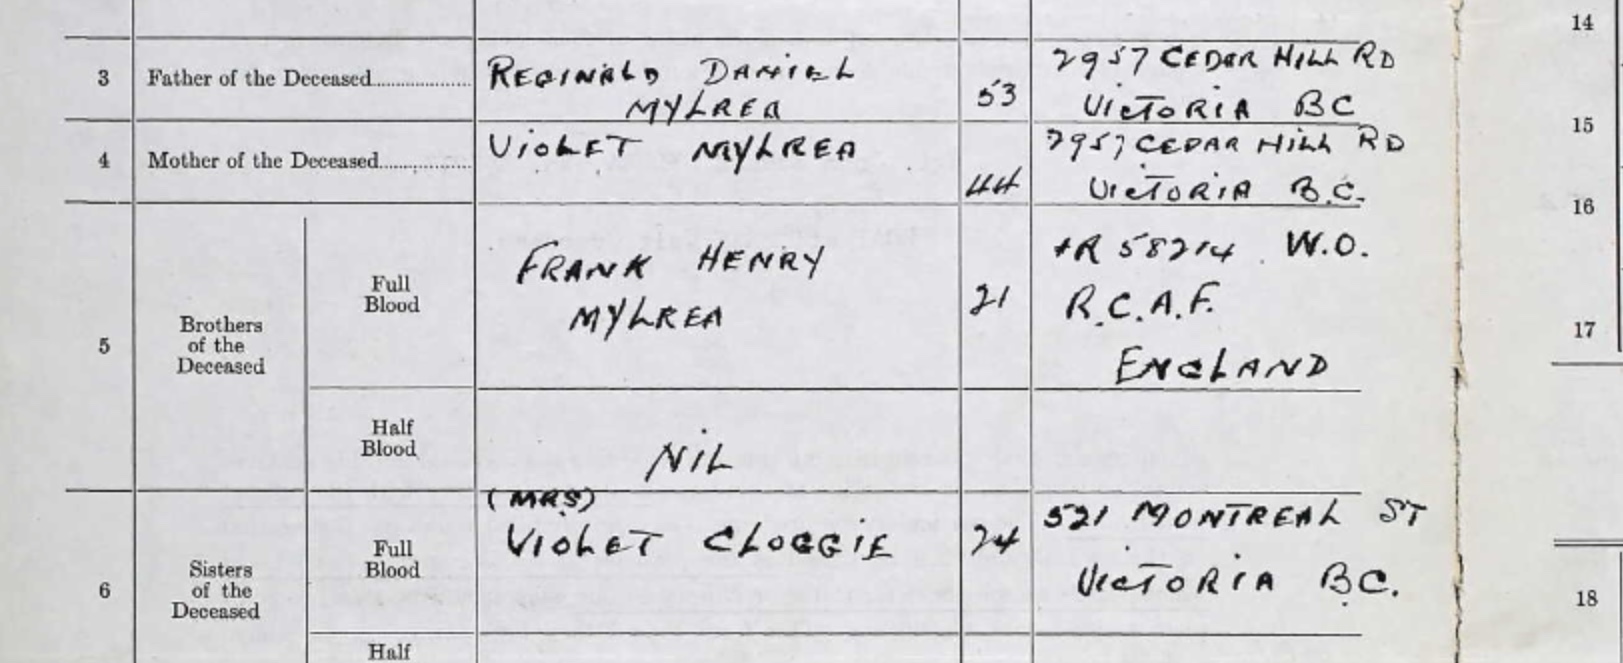 3 Father of the Deceased.................... REGINALD DANIEL 53 2957 CEDAR HILL RD
MYLREA VICTORIA BC
4 Mother of the Deceased.................. VIOLET MYLREA 44 2957 CEDAR HILL RD
VICTORIA B.C.
5 Brothers of the Deceased
Full Blood FRANK HENRY 21 +R 58214 W.O.
MYLREA R.C.A.F.
ENGLAND
Half Blood NIL
6 Sisters of the Deceased
Full Blood (MRS)
VIOLET CLOGGIE 24 521 MONTREAL ST
VICTORIA BC.
Half
14
15
16
17
18